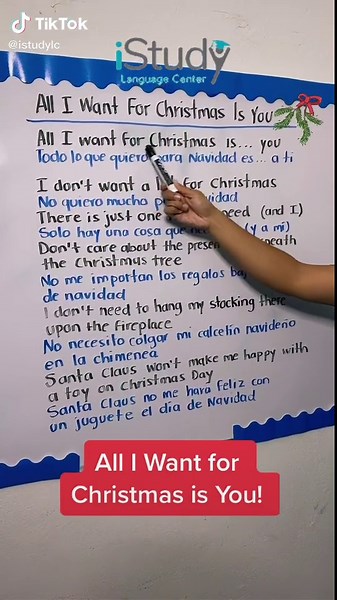 TikTok
@istudylc
iStudy
Language Center
All I Want For Christmas Is You
All I want for Christmas is... you
Todo lo que quiero para Navidad es... a ti
I don't want a for Christmas
No quiero mucho
There is just one need (and I)
Solo hay una cosa que (y a mi)
Don't care about the
the Christmas tree
No me importan los regalos
de navidad
I don't need to hang my stocking there
upon the fireplace
No necesito colgar mi calcetín navideño
en la chimenea
Santa Claus won't make me happy with
a toy on Christmas Day
Santa Claus no me hara feliz con
un juguete el día de Navidad
All I Want for
Christmas is You!